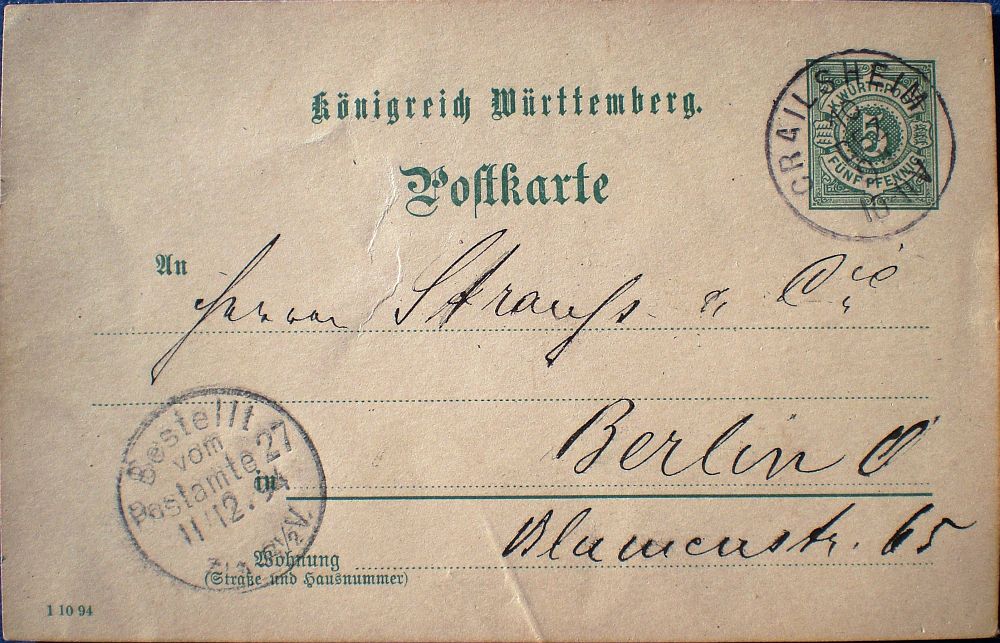 Königreich Württemberg.
Postkarte
K. WÜRTT. POST
5
FÜNF PFENNIG
CRAILSHEIM
An
Herrn Strauß & Cie
Berlin O
in
Blumenstr. 65
Wohnung
(Straße und Hausnummer)
Bestellt
vom
Postamte 27
11/12. 94
1 10 94